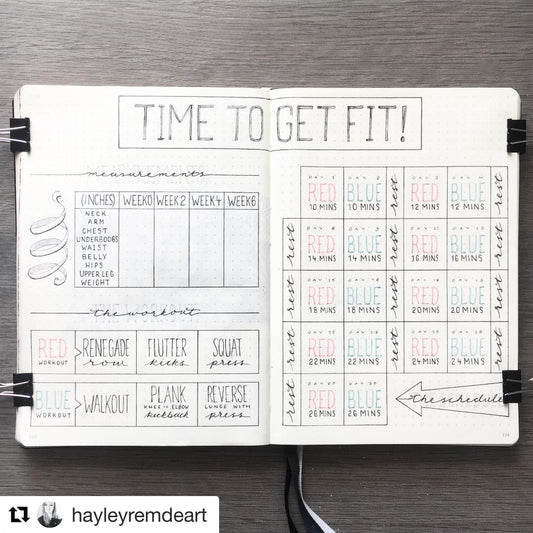 TIME TO GET FIT!
measurements
(INCHES) WEEK 0 WEEK 2 WEEK 4 WEEK 6
NECK
ARM
CHEST
UNDERBOOBS
WAIST
BELLY
HIPS
UPPER LEG
WEIGHT
the workout
RED
WORKOUT
RENEGADE
row
FLUTTER
kicks
SQUAT
press
BLUE
WORKOUT
WALKOUT
PLANK
KNEE TO ELBOW
kickback
REVERSE
LUNGE WITH
press
DAY 1 DAY 2 DAY DAY
RED BLUE rest RED BLUE rest
10 MINS 10 MINS 12 MINS 12 MINS
DAY DAY DAY DAY
rest RED BLUE rest RED BLUE rest
14 MINS 14 MINS 16 MINS 16 MINS
DAY DAY DAY DAY
rest RED BLUE rest RED BLUE rest
18 MINS 18 MINS 20 MINS 20 MINS
DAY DAY DAY DAY
rest RED BLUE rest RED BLUE rest
22 MINS 22 MINS 24 MINS 24 MINS
DAY DAY
rest RED BLUE
26 MINS 26 MINS
the schedule
hayleyremdeart